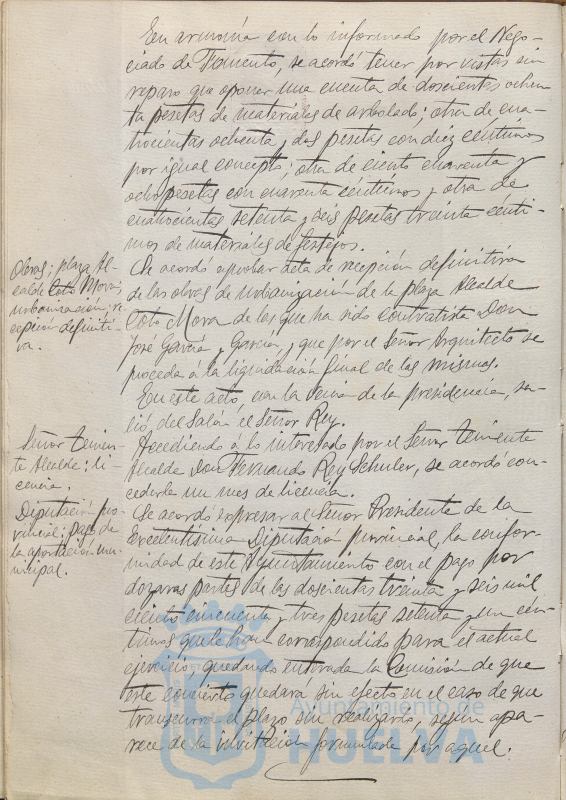 En armonía con lo informado por el Nego-
ciado de Fomento, se acordó tener por vistas sin
reparo que oponer una cuenta de doscientas ochen
ta pesetas de materiales de arbolado; otra de cua-
trocientas ochenta y dos pesetas con diez centimos
por igual concepto; otra de ciento cuarenta y
ocho pesetas con cuarenta céntimos y otra de
cuatrocientas setenta y seis pesetas treinta cénti-
mos de materiales de festejos.
Obras; plaza Al-
calde Coto Mora;
urbanización; re-
cepción definiti-
va.
Se acordó aprobar acta de recepción definitiva
de las obras de urbanización de la plaza Alcalde
Coto Mora de las que ha sido contratista Don
José García y García, y que por el Señor Arquitecto se
proceda á la liquidación final de las mismas.
En este acto, con la venia de la presidencia, sa-
lió, del Salón el Señor Rey.
Señor tenien-
te Alcalde; li-
cencia.
Accediendo á lo interesado por el Señor teniente
Alcalde Don Fernando Rey Schuler, se acordó con-
cederle un mes de licencia.
Diputación pro-
vincial; pago de
la aportación mu-
nicipal.
Se acordó expresar al Señor Presidente de la
Excelentísima Diputación provincial, la confor-
midad de este Ayuntamiento con el pago por
dozavas partes de las doscientas treinta y seis mil
ciento cincuenta y tres pesetas setenta y un cén-
timos que le han correspondido para el actual
ejercicio, quedando enterada la Comisión de que
este concierto quedara sin efecto en el caso de que
transcurra el plazo sin realizarlo, según apa-
rece de la invitación formulada por aquel.
Ayuntamiento de
HUELVA